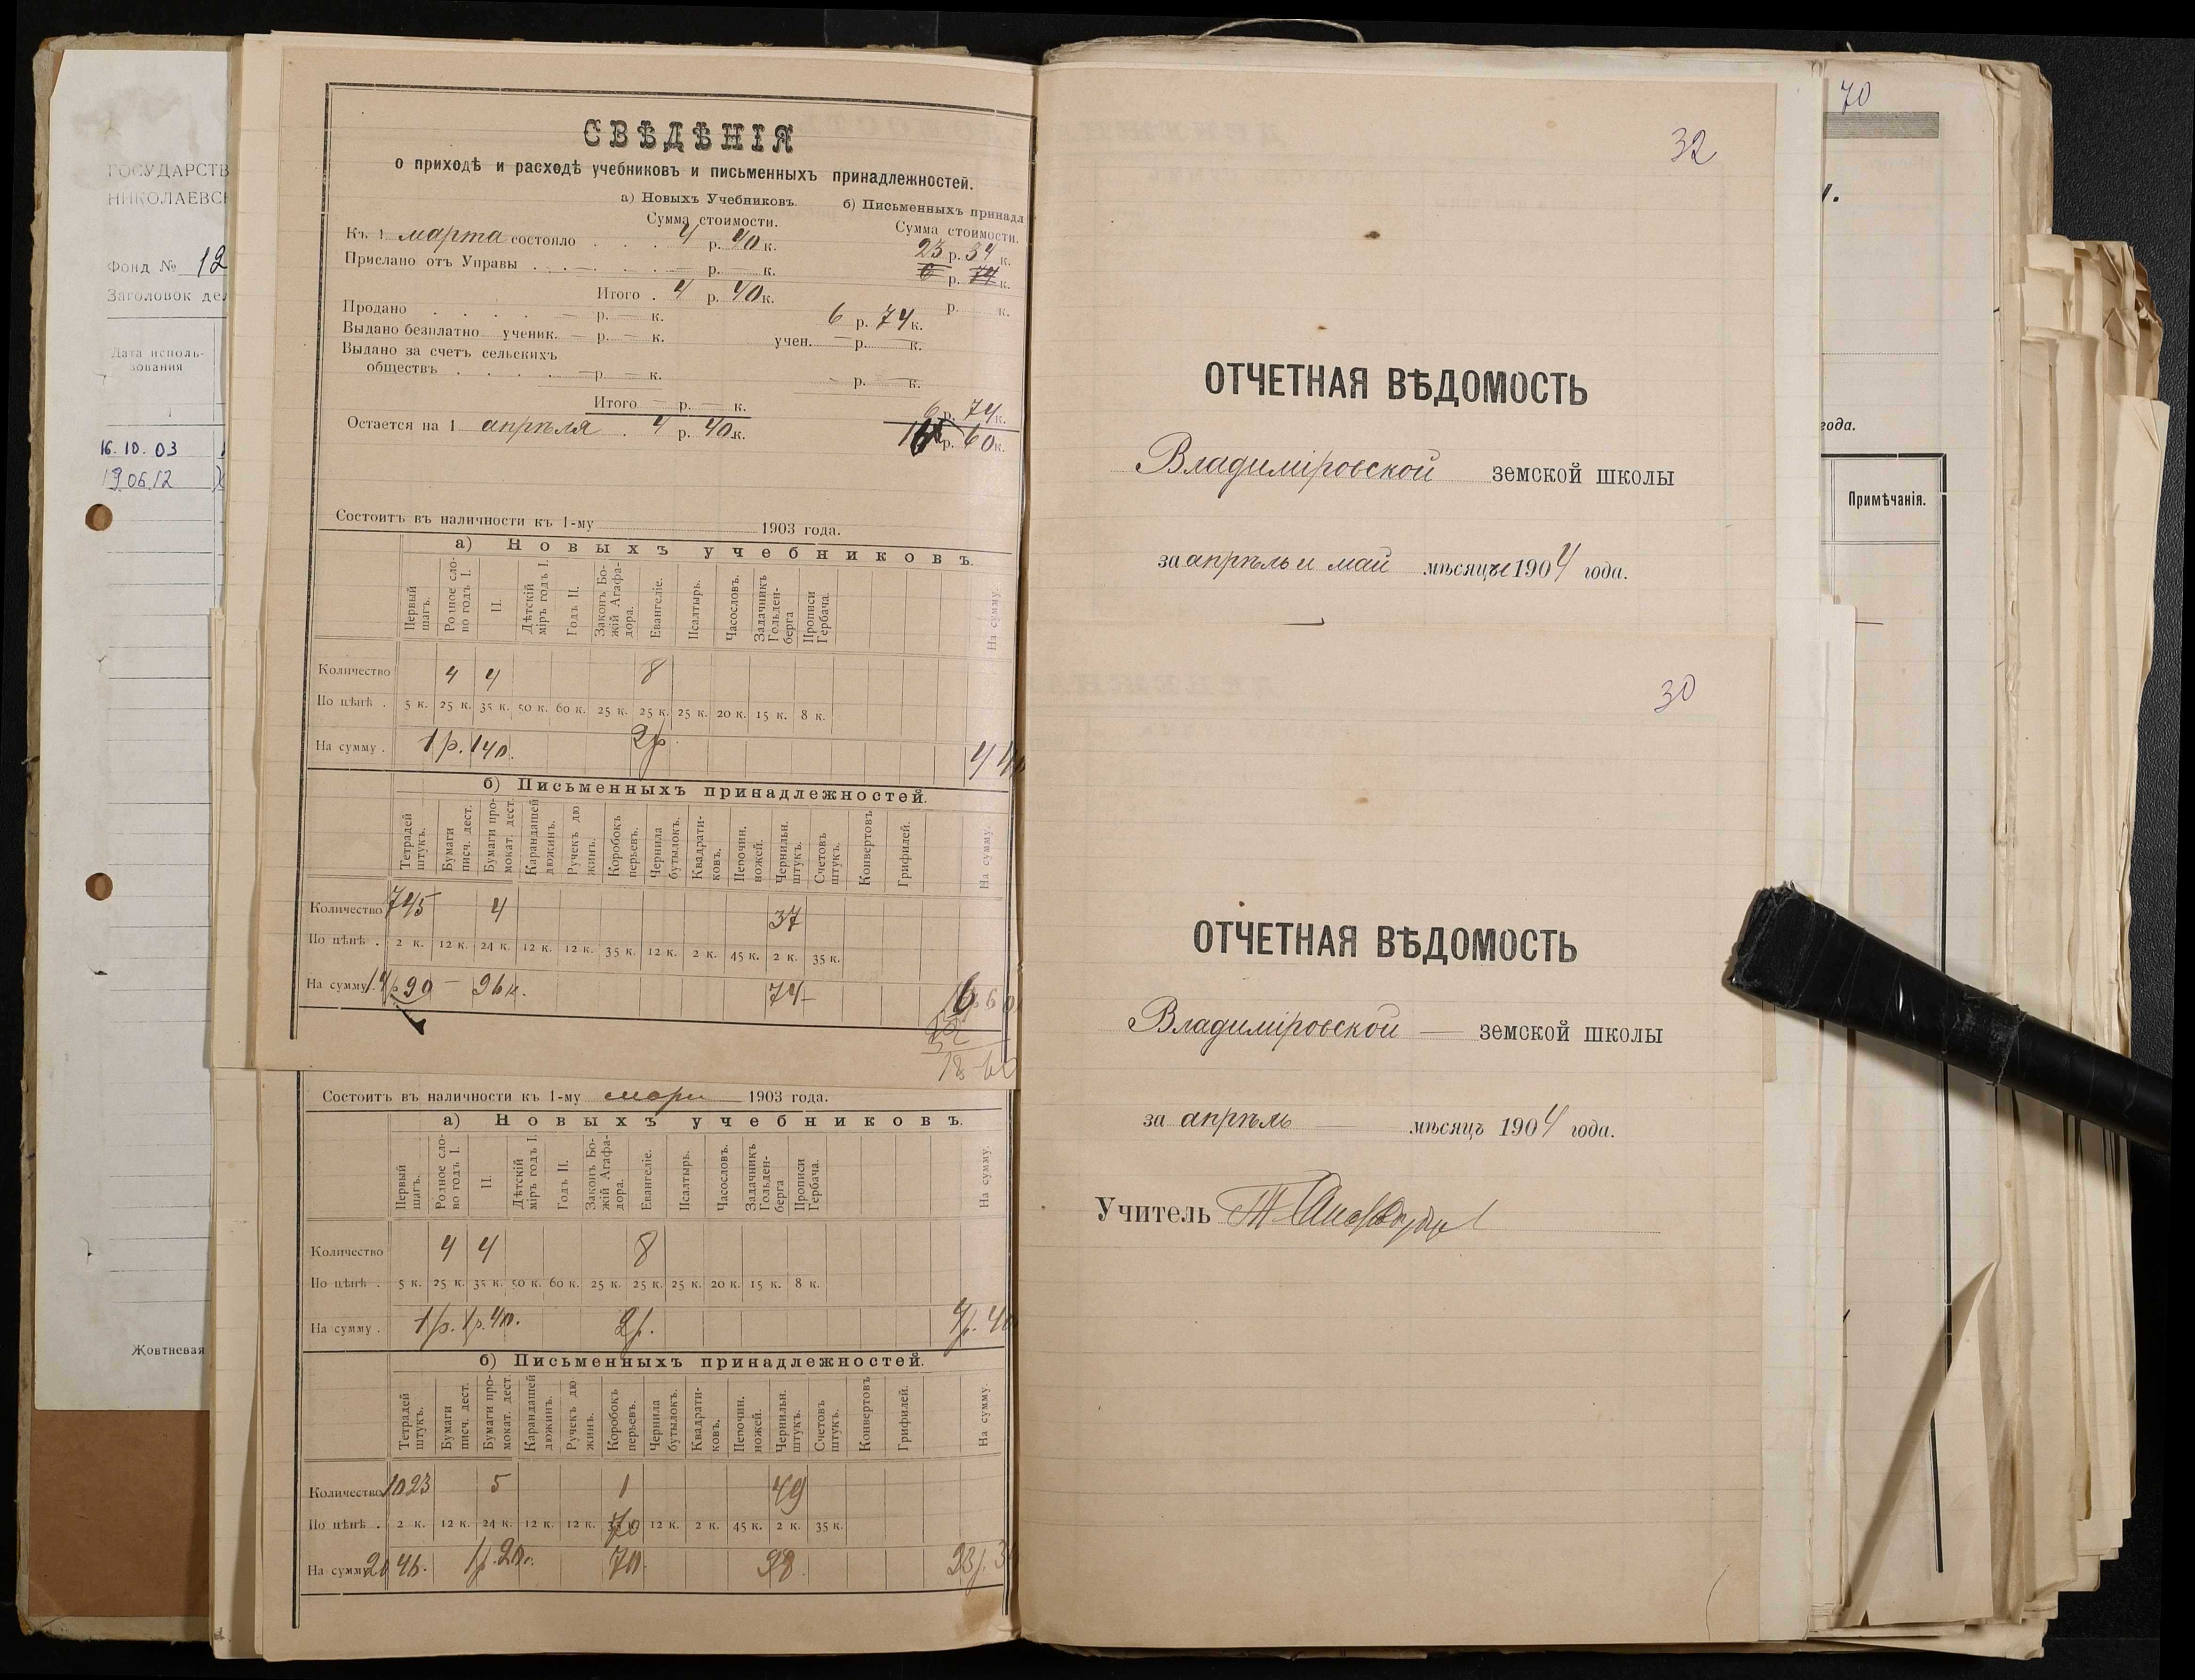 ГОСУДАРСТВ
НИКОЛАЕВСК
Фонд № 12
Заголовок дел
Дата исполь-
зования
1
16.10.03
19.06.12
Жовтневая
СВѢДѢНІЯ
о приходѣ и расходѣ учебниковъ и письменныхъ принадлежностей.
а) Новыхъ Учебниковъ. б) Письменныхъ принадл
Сумма стоимости. Сумма стоимости.
Къ 1 марта состояло . . . 4 р. 40 к. 23 р. 34 к.
Прислано отъ Управы . . . — р. — к. 6 р. 74 к.
Итого . 4 р. 40 к. р. к.
Продано . . . . — р. — к. 6 р. 74 к.
Выдано безплатно ученик. — р. — к. учен. — р. — к.
Выдано за счетъ сельскихъ
обществъ . . . . — р. — к. — р. — к.
Итого — р. — к. 6 р. 74 к.
Остается на 1 апрѣля . 4 р. 40 к. 16 р. 60 к.
Состоитъ въ наличности къ 1-му 1903 года.
а) Новыхъ учебниковъ.
Первый шагъ. Родное сло-во годъ I. II. Дѣтскій міръ годъ I. Годъ II. Законъ Бо-жій Агафа-дора. Евангеліе. Псалтырь. Часословъ. Задачникъ Гольден-берга Прописи Гербача. На сумму.
Количество 4 4 8
По цѣнѣ . 5 к. 25 к. 35 к. 50 к. 60 к. 25 к. 25 к. 25 к. 20 к. 15 к. 8 к.
На сумму . 1 р. 140. 2 р. 4 40
б) Письменныхъ принадлежностей.
Тетрадей штукъ. Бумаги писч. дест. Бумаги про-мокат. дест. Карандашей дюжинъ. Ручекъ дю жинъ. Коробокъ перьевъ. Чернила бутылокъ. Квадрати-ковъ. Перочин. ножей. Чернильн. штукъ. Счетовъ штукъ. Конвертовъ Грифилей. На сумму.
Количество 745 4 37
По цѣнѣ . 2 к. 12 к. 24 к. 12 к. 12 к. 35 к. 12 к. 2 к. 45 к. 2 к. 35 к.
На сумму . 14 р 90 — 96 к. 74 —
Состоитъ въ наличности къ 1-му мар 1903 года.
а) Новыхъ учебниковъ.
Первый шагъ. Родное сло-во годъ I. II. Дѣтскій міръ годъ I. Годъ II. Законъ Бо-жій Агафа-дора. Евангеліе. Псалтырь. Часословъ. Задачникъ Гольден-берга Прописи Гербача. На сумму.
Количество 4 4 8
По цѣнѣ . 5 к. 25 к. 35 к. 50 к. 60 к. 25 к. 25 к. 25 к. 20 к. 15 к. 8 к.
На сумму . 1 р. 1 р. 40. 2 р. 4 р. 40
б) Письменныхъ принадлежностей.
Тетрадей штукъ. Бумаги писч. дест. Бумаги про-мокат. дест. Карандашей дюжинъ. Ручекъ дю жинъ. Коробокъ перьевъ. Чернила бутылокъ. Квадрати-ковъ. Перочин. ножей. Чернильн. штукъ. Счетовъ штукъ. Конвертовъ Грифилей. На сумму.
Количество 1023 5 1 49
По цѣнѣ . 2 к. 12 к. 24 к. 12 к. 12 к. 70 12 к. 2 к. 45 к. 2 к. 35 к.
На сумму 20 46. 1 р. 20 к. 70. 98. 23 р. 3
32
ОТЧЕТНАЯ ВѢДОМОСТЬ
Владиміровской земской школы
за апрѣль и май мѣсяцы 1904 года.
30
ОТЧЕТНАЯ ВѢДОМОСТЬ
Владиміровской — земской школы
за апрѣль — мѣсяцъ 1904 года.
Учитель
70
года.
Примѣчанія.